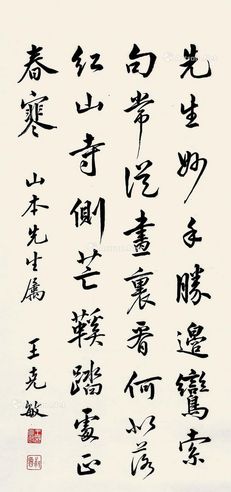 先生妙手勝邊鸞索
句常從畫裏看何似落
紅山寺側芒鞵踏處正
春寒
山本先生屬
王克敏